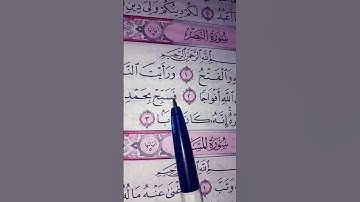 أَعْبُدُ ۝ لَكُمْ دِينُكُمْ وَلِيَ دِينِ
سُورَةُ النَّصْرِ
اللَّهِ الرَّحْمَٰنِ الرَّحِيمِ
وَالْفَتْحُ ۝١ وَرَأَيْتَ النَّا
اللَّهِ أَفْوَاجًا ۝٢ فَسَبِّحْ بِحَمْدِ
إِنَّهُ كَانَ ۝٣
سُورَةُ الْمَسَ
اللَّهِ
وَتَبَّ ۝١ أَغْنَىٰ عَنْهُ مَالُهُ